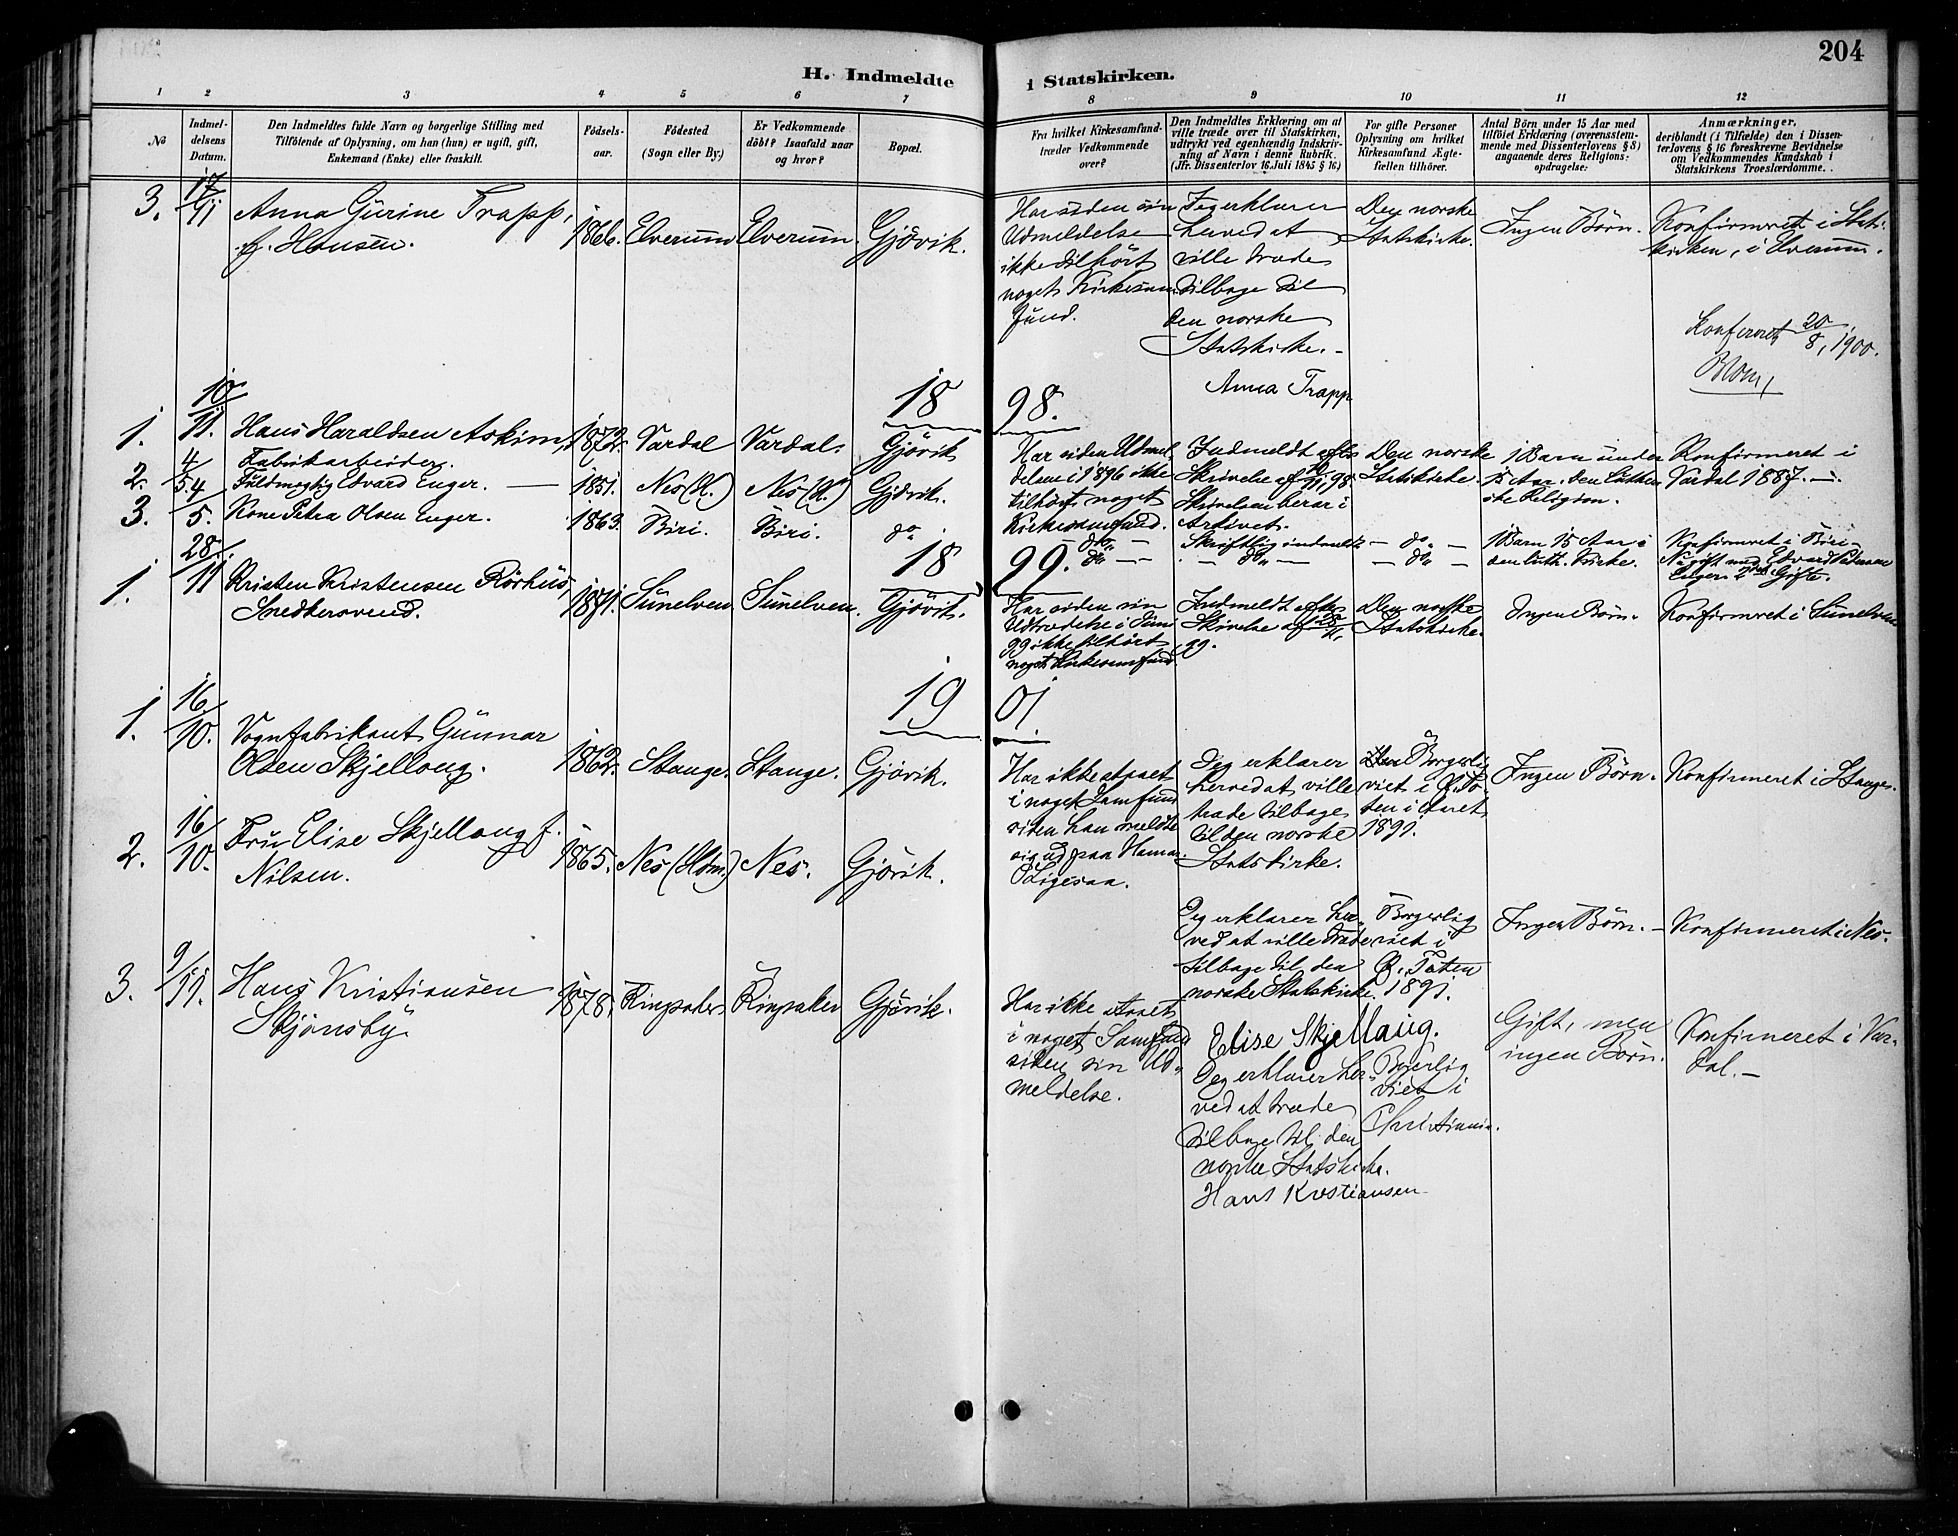 204
H. Indmeldte i Statskirken.
1 2 3 4 5 6 7 8 9 10 11 12
No
Indmel-
delsens
Datum.
Den Indmeldtes fulde Navn og borgerlige Stilling med
Tilföiende af Oplysning, om han (hun) er ugift, gift,
Enkemand (Enke) eller fraskilt.
Födsels-
aar.
Födested
(Sogn eller By.)
Er Vedkommende
döbt? Isaafald naar
og hvor?
Bopæl.
Fra hvilket Kirkesamfund
træder Vedkommende
over?
Den Indmeldtes Erklæring om at
ville træde over til Statskirken,
udtrykt ved egenhændig Indskriv-
ning af Navn i denne Rubrik.
(Jfr. Dissenterlov 16. Juli 1845 § 16.)
For gifte Personer
Oplysning om hvilket
Kirkesamfund Ægte-
fællen tilhörer.
Antal Börn under 15 Aar med
tilföiet Erklæring (overensstem-
mende med Dissenterlovens § 8)
angaaende deres Religions-
opdragelse.
Anmærkninger,
deriblandt (i Tilfælde) den i Dissen-
terlovens § 16 foreskrevne Bevidnelse
om Vedkommendes Kundskab i
Statskirkens Troeslærdomme.
3.
17/11
Anna Gurine Trapp,
f. Hansen.
1866.
Elverum
Elverum.
Gjövik.
Har siden sin
Udmeldelse
ikke tilhört
noget Kirkesam-
fund.
Jeg erklærer
herved at
ville træde
tilbage til
den norske
Statskirke.-
Anna Trapp
Den norske
Statskirke.
Ingen Börn.
Konfirmeret i Stats-
kirken, i Elverum.
Konfereret 20/8, 1900.
Blom,
1898.
1.
10/11.
Hans Haraldsen Askim,
Fabrikarbeider.
1872.
Vardal
Vardal.
Gjövik
Har siden Udmel-
delsen i 1896 ikke
tilhört noget
Kirkesamfund.
Indmeldt efter
Skrivelse af 10/11, 98.
Skrivelsen beror i
Arkivet.
Den norske
Statskirke.
1 Barn under
15 Aar. den Luther-
ske Religion.
Konfirmeret i
Vardal 1887.-
2.
4/5.
Fuldmægtig Edvard Enger.
1851.
Nes (H.)
Nes (H.)
Gjövik.
do -
Skriftlig indmeldt
- do -
1 Barn 15 Aar i
den luth. Kirke.
Konfirmeret i Biri-
3.
4/5.
Kone Petra Olsen Enger.
1863.
Biri.
Biri.
do
do -
- do -
- do -
Nu gift med Edvard Pedersen
Enger. 2det Gifte.
1899.
1.
28/11
Kristen Kristensen Rörhus,
Snedkersvend.
1871.
Sunelven
Sunelven.
Gjövik.
Har siden sin
Udtrædelse i Juni
99 ikke tilhört
noget Kirkesamfund
Indmeldt efter
Skrivelse af 28/11,
99.
Den norske
Statskirke.
Ingen Börn.
Konfirmeret i Sunelven
1901.
1.
16/10.
Vognfabrikant Gunnar
Olsen Skjellong.
1862.
Stange.
Stange.
Gjövik.
Har ikke staaet
i noget Samfund
siden han meldte
sig ud paa Hamar.
Jeg erklærer
herved at ville
træde tilbage
til den norske
Statskirke.
Borgerlig
viet i Ö. To-
ten i Aaret
1891.
Ingen Börn.
Konfirmeret i Stange.
2.
16/10.
Fru Elise Skjellong f.
Nilsen.
1865.
Nes (Hdm.)
Nes.
Gjövik.
Ligesaa.
Jeg erklærer her-
ved at ville træde
tilbage til den
norske Statskirke.
Elise Skjellaug.
Borgerlig
viet i
Ö. Toten
1891.
Ingen Börn.-
Konfirmeret i Nes.
3.
9/11.
Hans Kristiansen
Skjönsby.
1878.
Ringsaker
Ringsaker
Gjövik.
Har ikke staaet
i noget Samfund
siden sin Ud-
meldelse.
Jeg erklærer her-
ved at træde
tilbage til den
norske Statskirke.
Hans Kristiansen
Borgerlig
viet i
Christiania.
Gift, men
ingen Börn.
Konfirmeret i Var-
dal.-